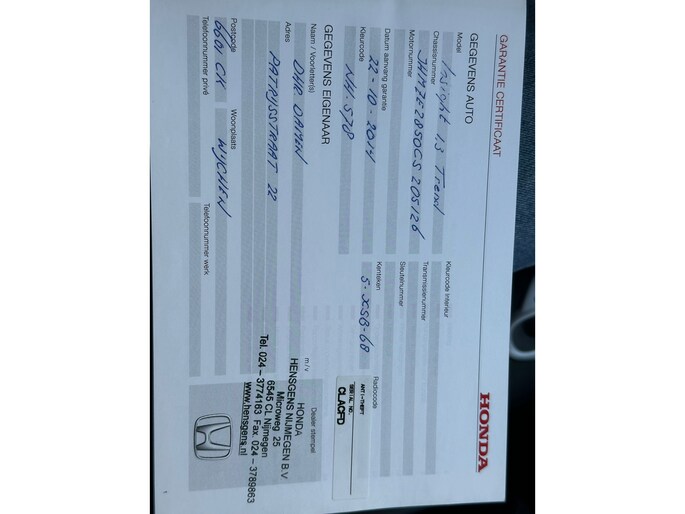 GARANTIE CERTIFICAAT
HONDA
GEGEVENS AUTO
Model
Insight 1.3 Trend
Kleurcode Interieur
Chassisnummer
JHMZE2850CS205126
Transmissienummer
Motornummer
Sleutelnummer
Datum aanvang garantie
22-10-2014
Kenteken
5-XSB-68
Radiocode
ANTI-THEFT
SERIAL NO.
CLACFD
Kleurcode
NH-578
GEGEVENS EIGENAAR
Naam / Voorletter(s)
DHR DAMEN
m/v
Dealer stempel
Adres
PATRIJSSTRAAT 22
HONDA
HENSGENS NIJMEGEN B.V
Microweg 25
6545 CL Nijmegen
Tel. 024 - 3774163 Fax. 024 - 3789863
www.hensgens.nl
Postcode
6601 CK
Woonplaats
WYCHEN
Telefoonnummer privé
Telefoonnummer werk